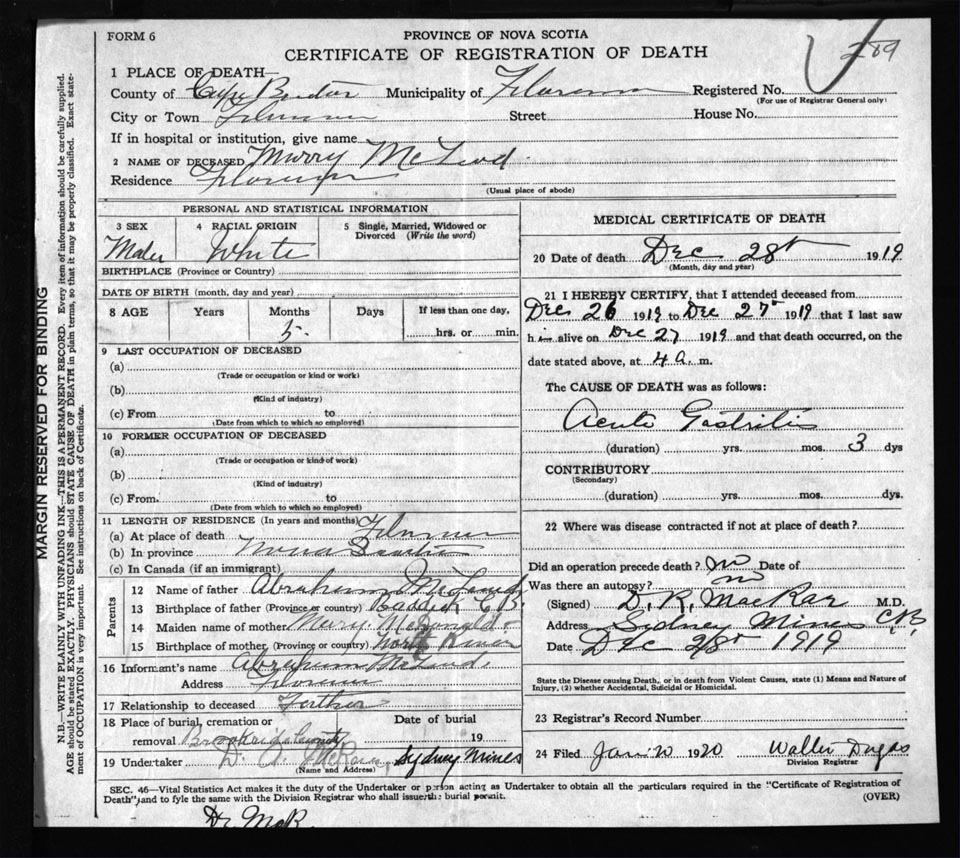 FORM 6
PROVINCE OF NOVA SCOTIA
CERTIFICATE OF REGISTRATION OF DEATH
289
1 PLACE OF DEATH—
County of Cape Breton Municipality of Florence Registered No.
(For use of Registrar General only)
City or Town Florence Street House No.
If in hospital or institution, give name
2 NAME OF DECEASED Murry McLeod
Residence Florence
(Usual place of abode)
MARGIN RESERVED FOR BINDING
N.B.—WRITE PLAINLY WITH UNFADING INK—THIS IS A PERMANENT RECORD. Every item of information should be carefully supplied.
AGE should be stated EXACTLY. PHYSICIANS should STATE CAUSE OF DEATH in plain terms, so that it may be properly classified. Exact state-
ment of OCCUPATION is very important. See instructions on back of Certificate.
PERSONAL AND STATISTICAL INFORMATION
3 SEX 4 RACIAL ORIGIN 5 Single, Married, Widowed or
Divorced (Write the word)
Male White
BIRTHPLACE (Province or Country)
DATE OF BIRTH (month, day and year)
8 AGE Years Months Days If less than one day,
5 hrs. or min.
9 LAST OCCUPATION OF DECEASED
(a)
(Trade or occupation or kind or work)
(b)
(Kind of industry)
(c) From to
(Date from which to which so employed)
10 FORMER OCCUPATION OF DECEASED
(a)
(Trade or occupation or kind of work)
(b)
(Kind of industry)
(c) From to
(Date from which to which so employed)
11 LENGTH OF RESIDENCE (In years and months)
(a) At place of death Florence
(b) In province Nova Scotia
(c) In Canada (if an immigrant)
Parents
12 Name of father Abraham McLeod
13 Birthplace of father (Province or country) Baddeck C.B.
14 Maiden name of mother Mary McDonald
15 Birthplace of mother (Province or country) North River
16 Informant's name Abraham McLeod
Address Florence
17 Relationship to deceased Father
18 Place of burial, cremation or Date of burial
removal 19
19 Undertaker D. A. Sydney Mines
(Name and Address)
MEDICAL CERTIFICATE OF DEATH
20 Date of death Dec 28th 1919
(Month, day and year)
21 I HEREBY CERTIFY, that I attended deceased from
Dec 26 1919 to Dec 27th 1919 that I last saw
him alive on Dec 27 1919 and that death occurred, on the
date stated above, at 4 a. m.
The CAUSE OF DEATH was as follows:
Acute Gastritis
(duration) yrs. mos. 3 dys
CONTRIBUTORY
(Secondary)
(duration) yrs. mos. dys.
22 Where was disease contracted if not at place of death?
Did an operation precede death? no Date of
Was there an autopsy? no
(Signed) D. R. MacRae M.D.
Address Sydney Mines C.B.
Date Dec 28th 1919
State the Disease causing Death, or in death from Violent Causes, state (1) Means and Nature of
Injury, (2) whether Accidental, Suicidal or Homicidal.
23 Registrar's Record Number
24 Filed Jan 20 1920 Walter Dugas
Division Registrar
SEC. 46—Vital Statistics Act makes it the duty of the Undertaker or person acting as Undertaker to obtain all the particulars required in the "Certificate of Registration of
Death" and to fyle the same with the Division Registrar who shall issue the burial permit.
(OVER)
Dr. McR.